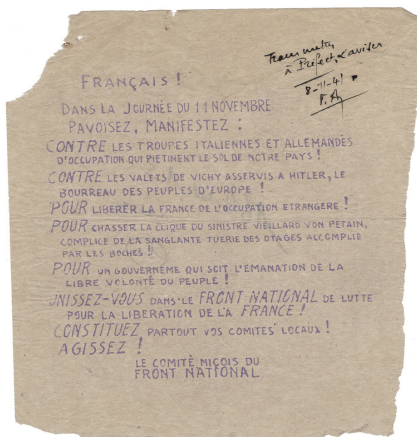 Transmettre
à Préfet, à aviser
8-11-41
FRANÇAIS !
DANS LA JOURNÉE DU 11 NOVEMBRE
PAVOISEZ, MANIFESTEZ :
CONTRE LES TROUPES ITALIENNES ET ALLEMANDES
D'OCCUPATION QUI PIETINENT LE SOL DE NOTRE PAYS !
CONTRE LES VALETS DE VICHY ASSERVIS A HITLER, LE
BOURREAU DES PEUPLES D'EUROPE !
POUR LIBERER LA FRANCE DE L'OCCUPATION ETRANGERE !
POUR CHASSER LA CLIQUE DU SINISTRE VIEILLARD VON PETAIN,
COMPLICE DE LA SANGLANTE TUERIE DES OTAGES ACCOMPLIE
PAR LES BOCHES !!
POUR UN GOUVERNEME QUI SOIT L'EMANATION DE LA
LIBRE VOLONTÉ DU PEUPLE !
UNISSEZ-VOUS DANS LE FRONT NATIONAL DE LUTTE
POUR LA LIBERATION DE LA FRANCE !
CONSTITUEZ PARTOUT VOS COMITÉS LOCAUX !
AGISSEZ !
LE COMITÉ NIÇOIS DU
FRONT NATIONAL